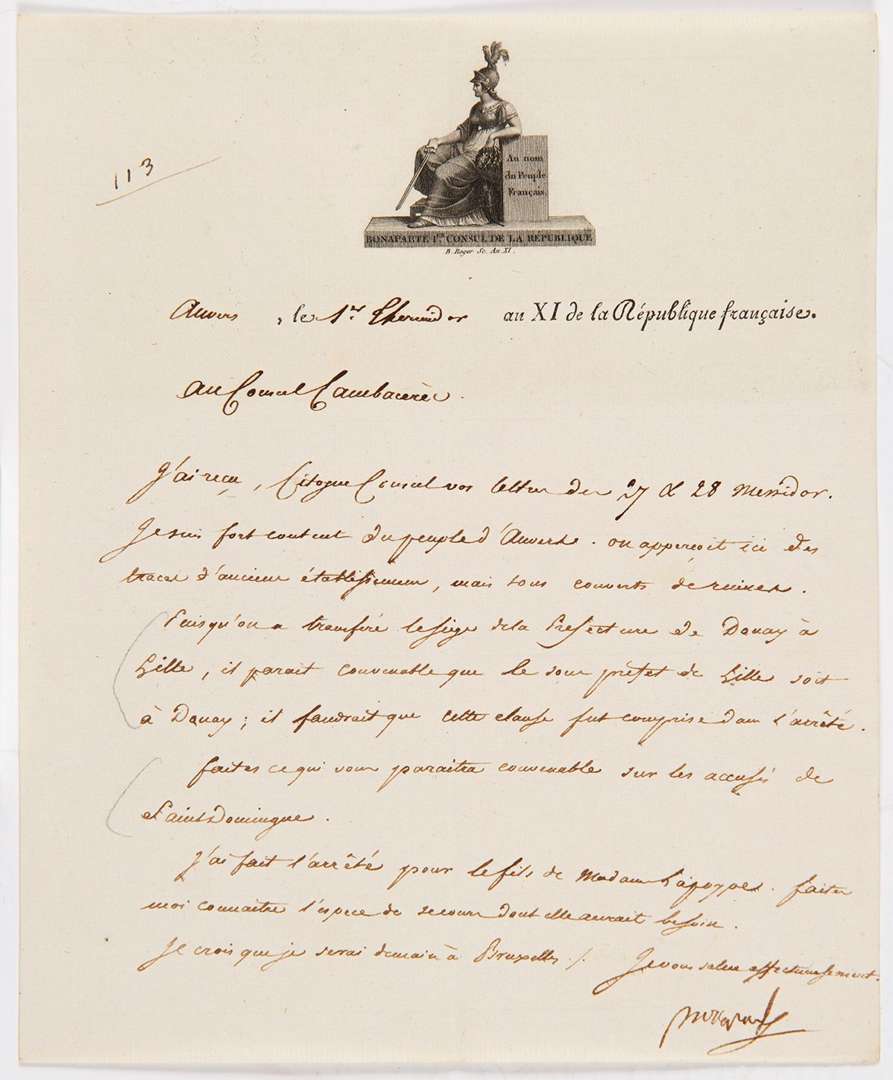 113
Au nom
du Peuple
Français.
BONAPARTE 1er. CONSUL DE LA RÉPUBLIQUE
B. Roger Sc. An XI.
Anvers, le 1er Thermidor an XI de la République française.
Au Consul Cambacérès.
J'ai reçu, Citoyen Consul vos lettres des 27 & 28 Messidor.
Je suis fort content du peuple d'Anvers. on apperçoit ici des
traces d'anciens établissemens, mais tous couverts de ruines.
Puisqu'on a transféré le siège de la Préfecture de Douay à
Lille, il parait convenable que le sous préfet de Lille soit
à Douay; il faudrait que cette clause fut comprise dans l'arrêté.
faites ce qui vous paraitra convenable sur les accusés de
Saint Domingue.
J'ai fait l'arrêté pour le fils de Madame Lapoype. faites
moi connaitre l'espece de secours dont elle aurait besoin.
Je crois que je serai demain à Bruxelles ./. Je vous salue affectueusement.